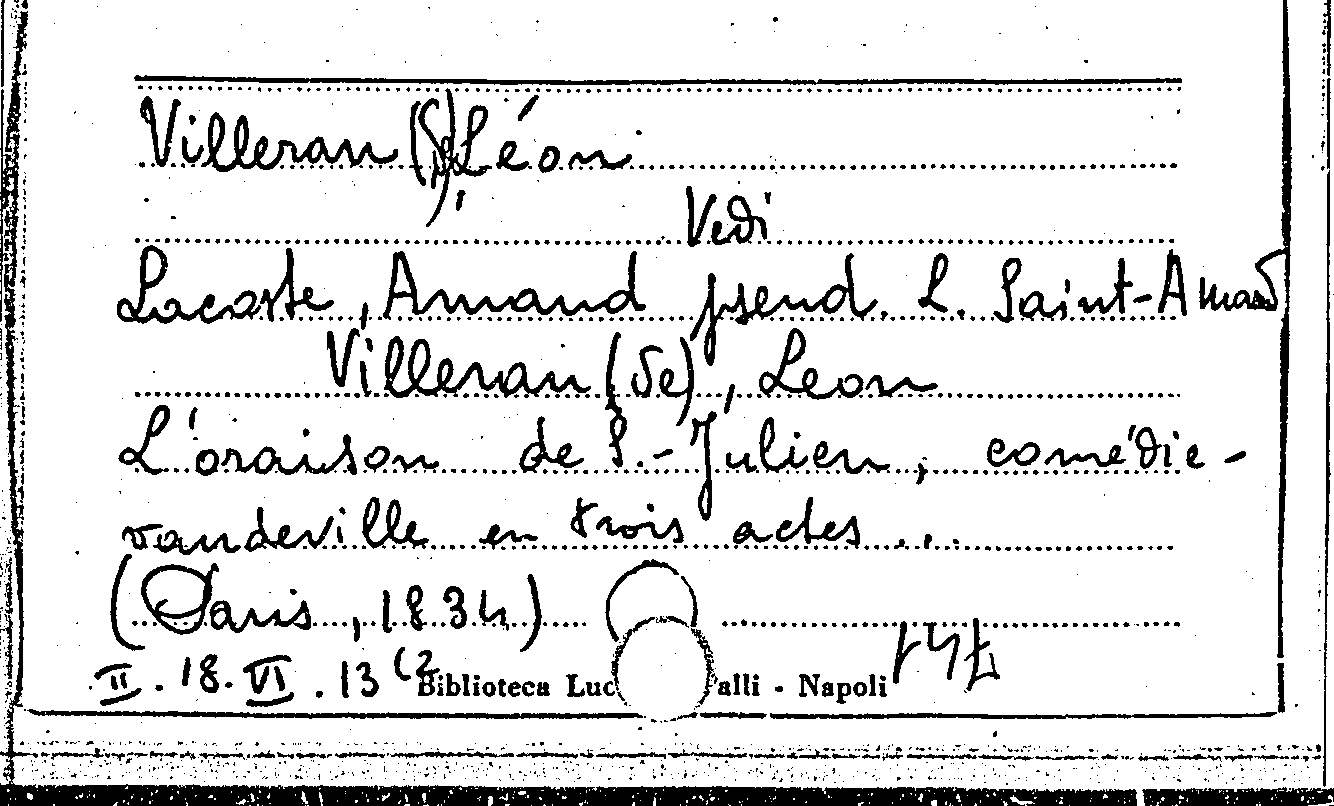 Villeran (de), Léon
Vedi
Lacoste, Amand pseud. L. Saint-Amand
Villeran (de), Leon
L'oraison de S.-Julien, comédie-
vaudeville en trois actes ...
(Paris, 1834)
II. 18. VI. 13 (2
Biblioteca Luc alli - Napoli